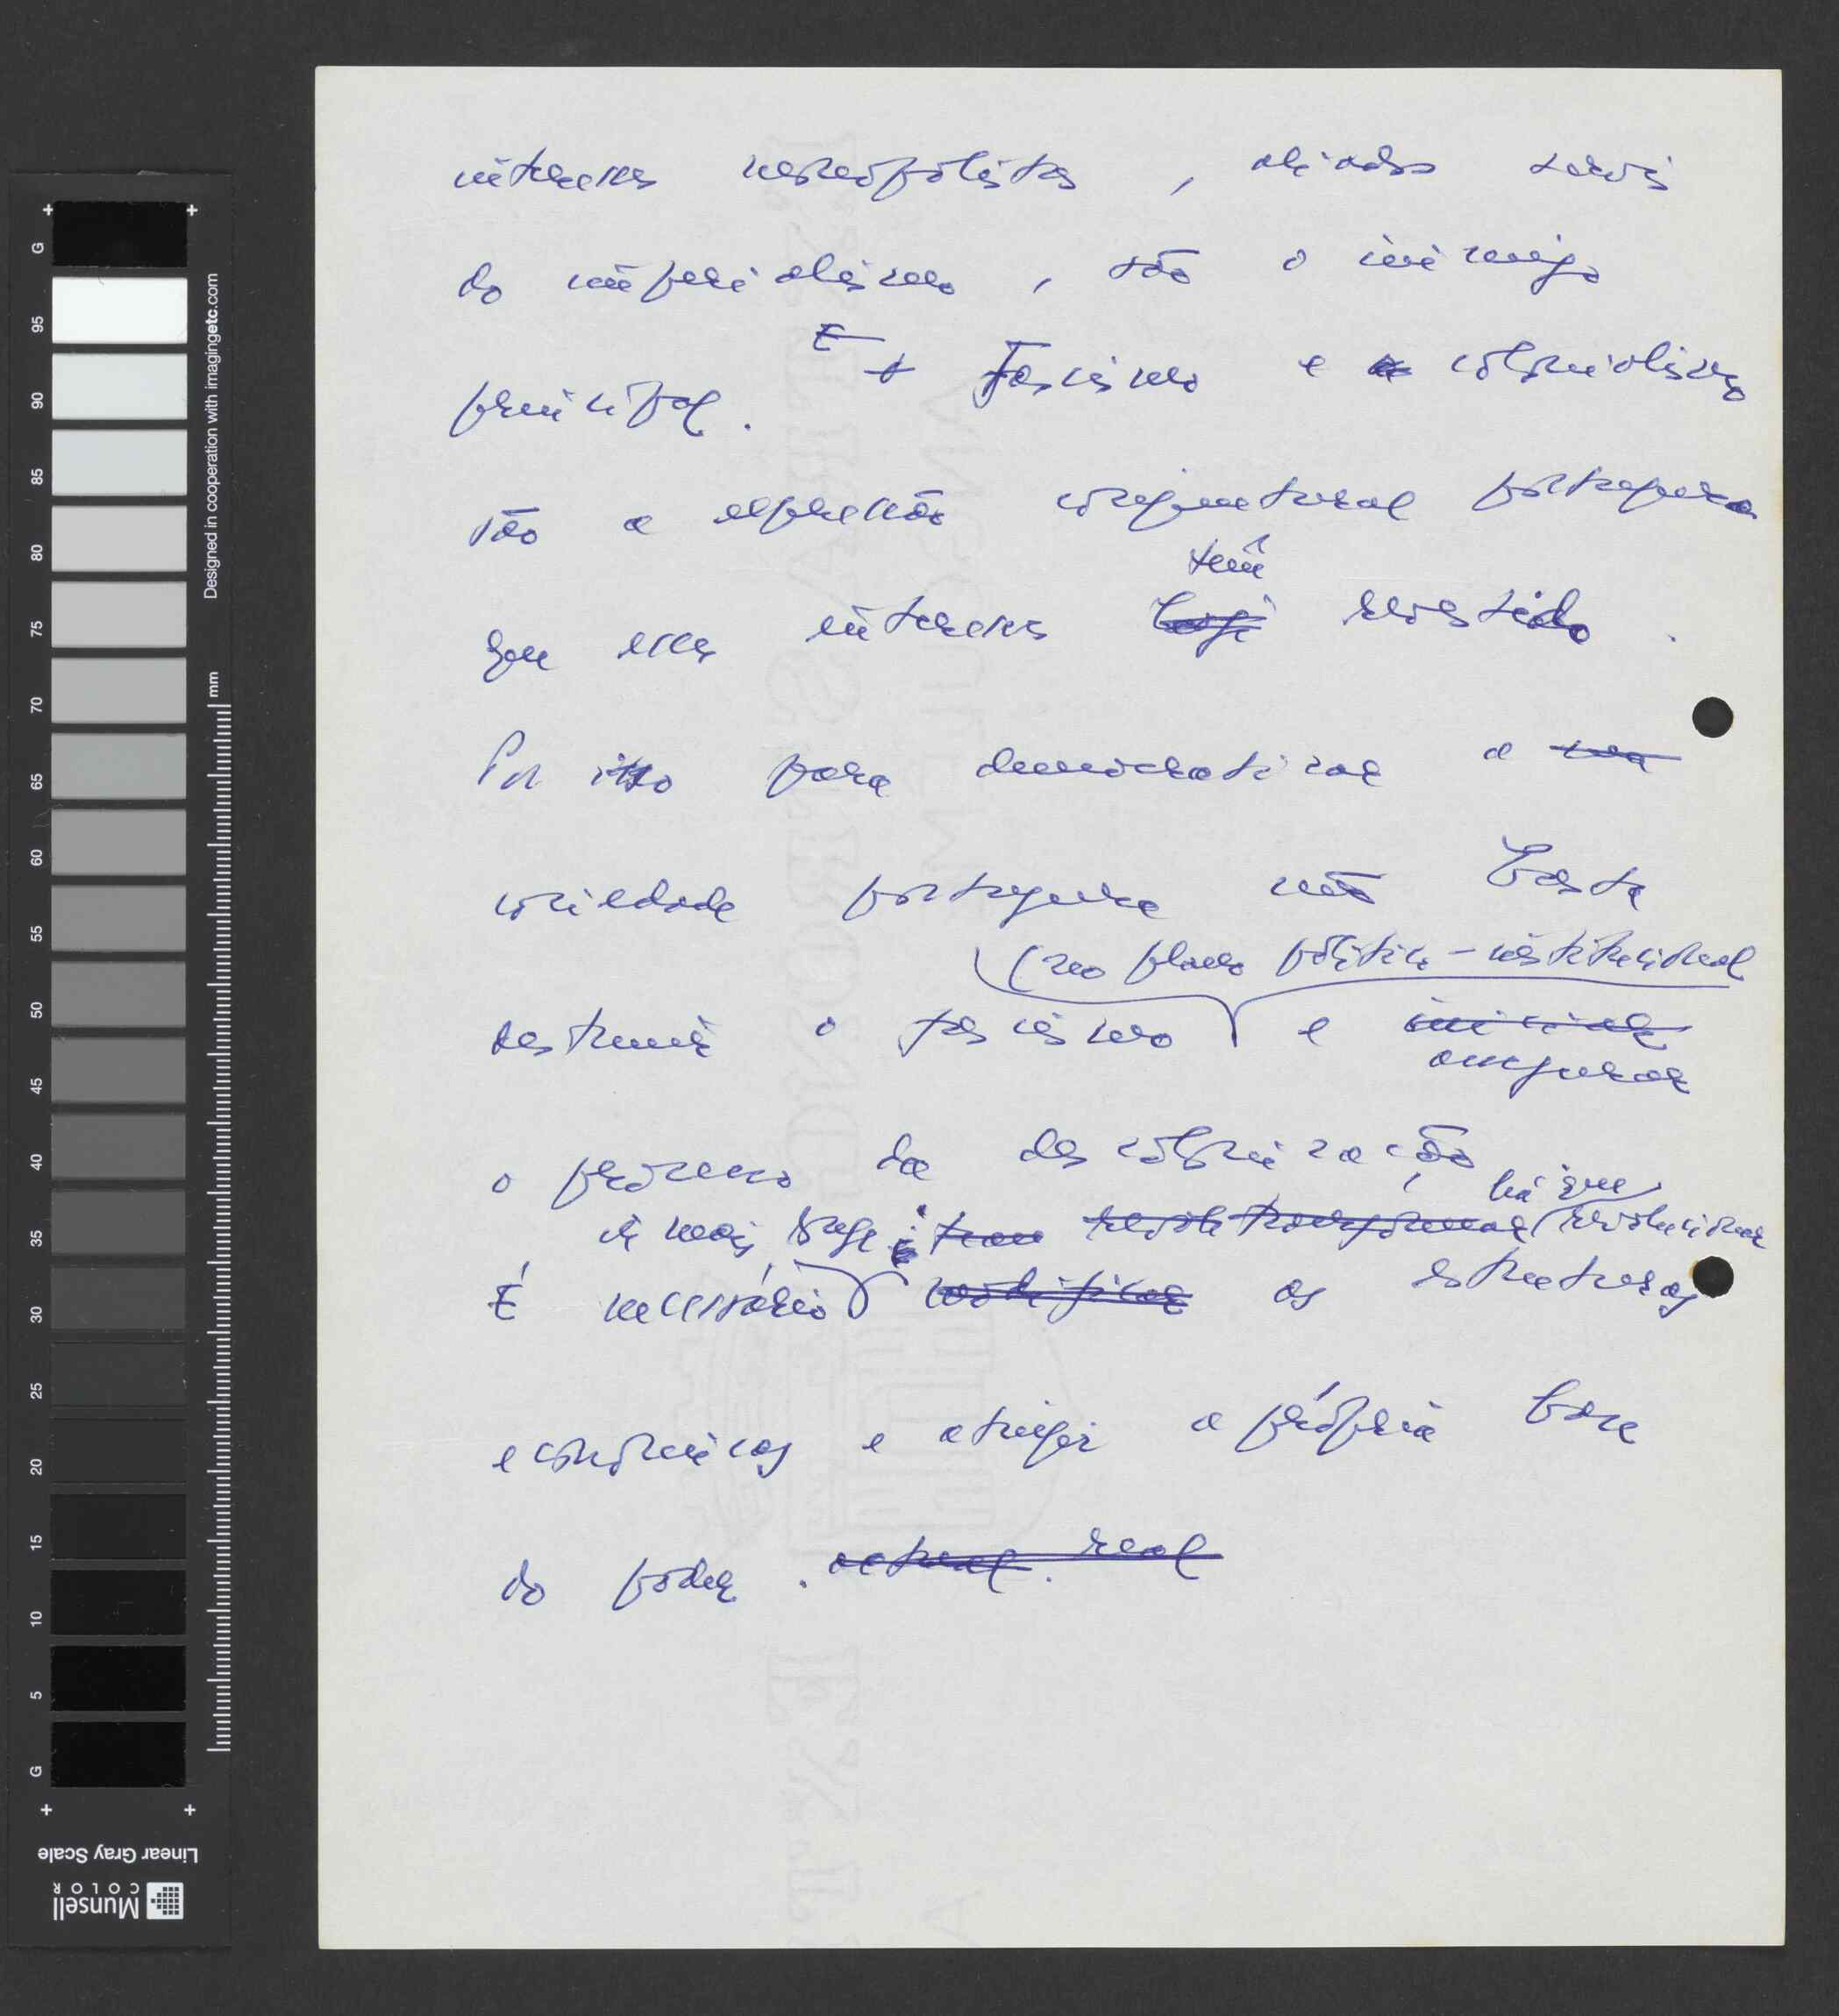 interesses monopolistas, aliados servis
do imperialismo, são o inimigo
principal. E Fascismo e colonialismo
são a expressão conjuntural portuguesa
têm
que esses interesses revestido.
Por isso para democratizar a
sociedade portuguesa não basta
(no plano político-institucional
destruir o fascismo e iniciar
assegurar
o processo da descolonização
há que
ir mais longe: transformar revolucionar
É necessário modificar as estruturas
económicas e atingir a própria base
do poder. actual. real
G
95
90
85
80
75
70
65
60
55
50
45
40
35
30
25
20
15
10
5
G
Designed in cooperation with imagingetc.com
mm
Linear Gray Scale
Munsell
COLOR